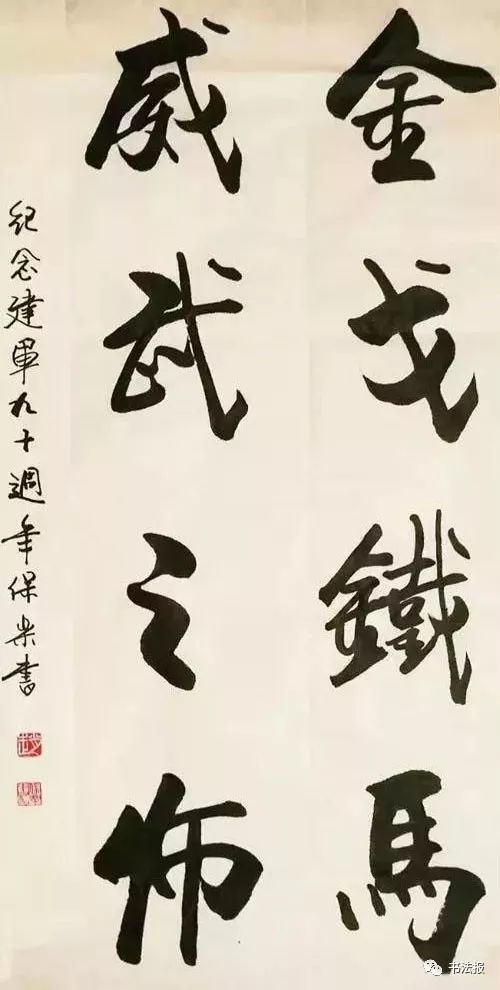 金戈鐵馬
威武之师
紀念建軍九十週年保樂书
书法报